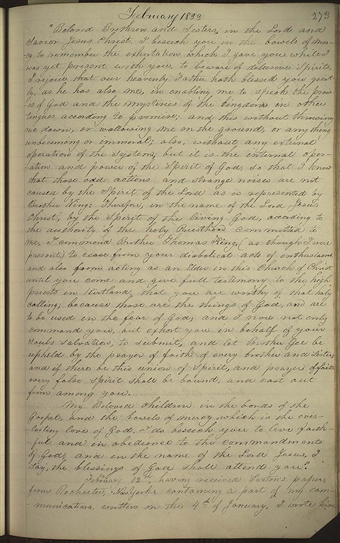 February 1833
273
"Beloved Brethren and Sisters, in the Lord and
Savior Jesus Christ, I beseech you in the bowels of mer-
cy to remember the exhortation which I gave you while I
was yet present with you, to beware of delusive Spirits.
I rejoice that our heavenly Father hath blessed you great-
ly, as he has also me, in enabling me to speak the prais-
es of God and the mysteries of the kingdom in other
tongues according to promise; and this without throwing
me down, or wallowing me on the ground, or any thing
unbecoming or immoral; also, without any external
operation of the system, but it is the internal oper-
ation and power of the Spirit of God, so that I know
that those odd actions and strange noises are not
caused by the Spirit of the Lord as is represented by
Brother King. Therefore, in the name of the Lord Jesus
Christ, by the Spirit of the living God, according to
the authority of the holy Priesthood committed to
me, I command Brother Thomas King, (as though I were
present) to cease from your diabolical acts of enthusiasm
and also from acting as an Elder in this Church of Christ
until you come and give full testimony to the high
priests in Kirtland, that you are worthy of that holy
calling; because those are the things of God, and are
to be used in the fear of God; and I now not only
command you, but exhort you in behalf of your
soul's salvation, to submit, and let Brother Joe be
upheld by the prayer of faith of every brother and sister,
and if there be this union of Spirit, and prayer of faith
every false spirit shall be bound, and cast out
from among you.
My Beloved Children in the bonds of the
Gospel, and the bowels of mercy, which is the ever-
lasting love of God, I do beseech you to live faith-
ful and in obedience to the commandments
of God; and in the name of the Lord Jesus, I
say, the blessings of God shall attend you."
February 12th having received Saxton's paper,
from Rochester, New York, containing a part of my com-
munication, written on the 4th of January, I wrote him